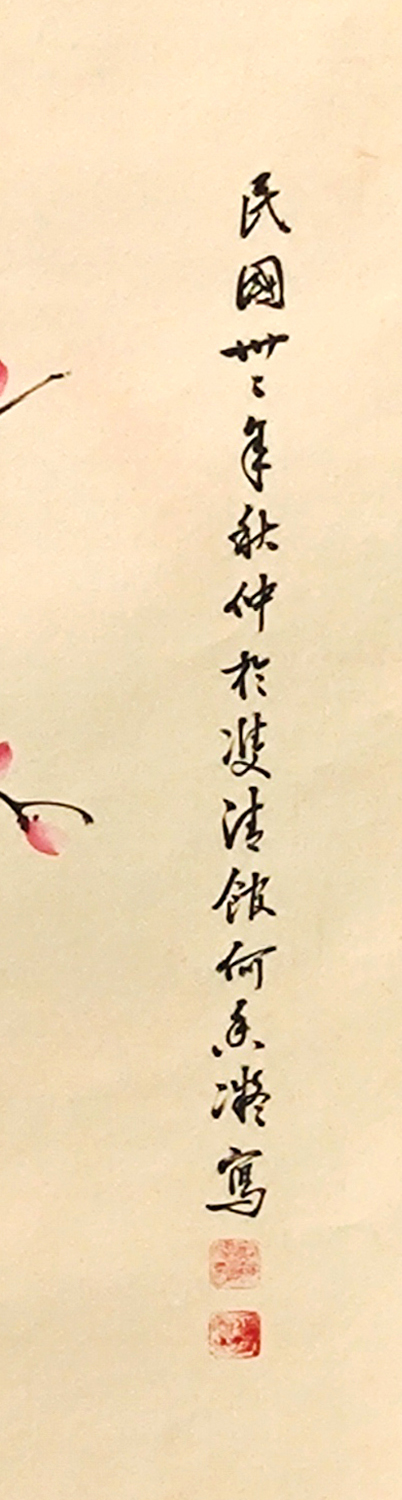 民國卅二年秋仲於雙清館何香凝寫